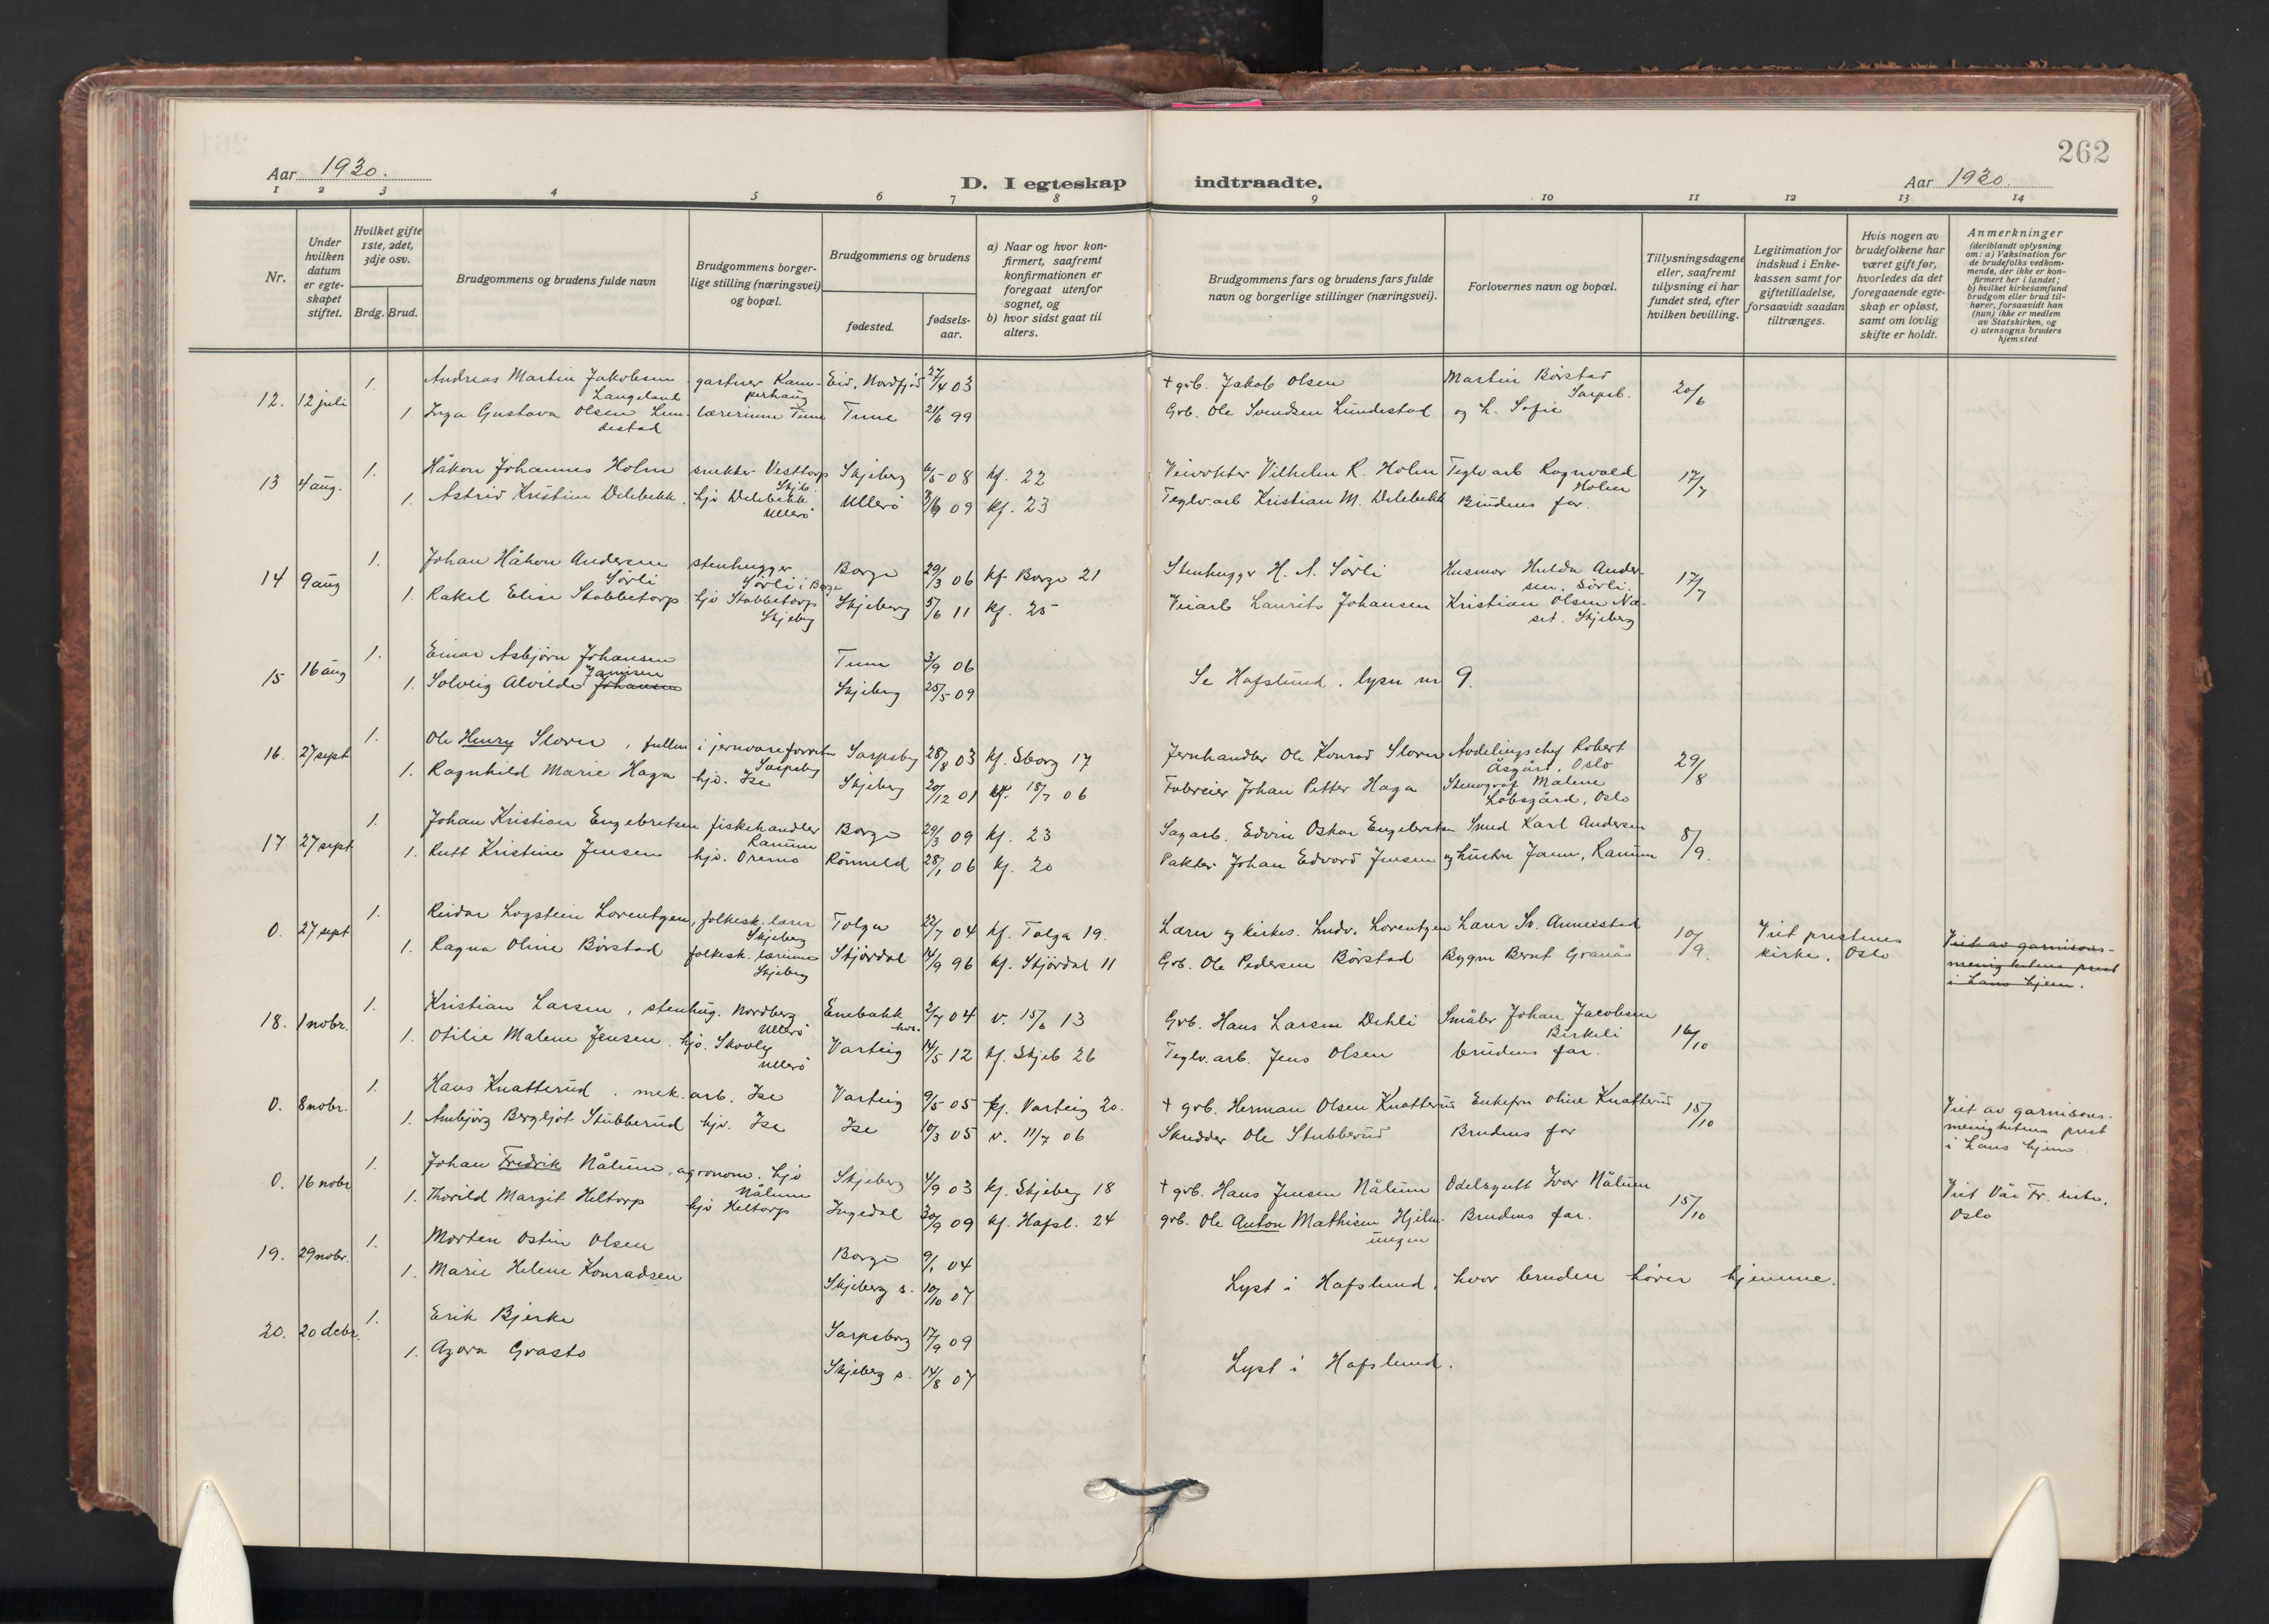 262
Aar 1930.
D. I egteskap indtraadte.
Aar 1930.
1 2 3 4 5 6 7 8 9 10 11 12 13 14
Nr.
Under hvilken datum er egteskapet stiftet.
Hvilket gifte 1ste, 2det, 3dje osv.
Brdg. Brud.
Brudgommens og brudens fulde navn
Brudgommens borgerlige stilling (næringsvei) og bopæl.
Brudgommens og brudens
fødested.
fødselsaar.
a) Naar og hvor konfirmert, saafremt konfirmationen er foregaat utenfor sognet, og
b) hvor sidst gaat til alters.
Brudgommens fars og brudens fars fulde navn og borgerlige stillinger (næringsvei).
Forlovernes navn og bopæl.
Tillysningsdagene eller, saafremt tillysning ei har fundet sted, efter hvilken bevilling.
Legitimation for indskud i Enkekassen samt for giftetilladelse, forsaavidt saadan tiltrænges.
Hvis nogen av brudefolkene har været gift før, hvorledes da det foregaaende egteskap er opløst, samt om lovlig skifte er holdt.
Anmerkninger (deriblandt oplysning om: a) Vaksination for de brudefolks vedkommende, der ikke er konfirmert her i landet; b) hvilket kirkesamfund brudgom eller brud tilhører, forsaavidt han (hun) ikke er medlem av Statskirken, og c) utensogns bruders hjemsted
12. 12 juli 1. Andreas Martin Jakobsen Langeland gartner Kamperhaug Eid, Nordfjord 27/4 03 + grb. Jakob Olsen Martin Börstad Sarpsb. 20/6
1. Inga Gustava Olsen Lundestad lærerinne Tune Tune 21/6 99 Grb. Ole Svendsen Lundestad og L. Sofie
13 4 aug. 1. Håkon Johannes Holm snekker Vesttorp Skjeb. Skjeberg 6/5 08 kf. 22 Veivokter Vilhelm R. Holm Teglv. arb Ragnvald Holm 17/7
1. Astrid Kristine Delebekk. hjo Delebekk Ullerö Ullerö 3/6 09 kf. 23 Teglv. arb Kristian M. Delebekk Brudens far.
14 9 aug 1. Johan Håkon Andersen Sörli stenhugger Sörli i Borge Borge 29/3 06 kf. Borge 21 Stenhugger H. A. Sörli Husmor Hulda Andersen, Sörli, 17/7
1. Rakel Elise Stabbetorp hjo Stabbetorp Skjeberg Skjeberg 5/6 11 kf. 25 Veiarb Laurits Johansen Kristian Olsen Næset. Skjeberg
15 16 aug 1. Einar Asbjörn Johansen Tune 3/9 06 Se Hafslund. lysn nr 9.
1. Solveig Alvilde Johansen Jansen Skjeberg 25/5 09
16. 27 sept 1. Ole Henry Storen, fullm i jernvareforretn Sarpsborg Sarpsbg 28/8 03 kf. Sborg 17 Jernhandler Ole Konrad Storen Avdelingschef Robert Åsgård, Oslo 29/8
1. Ragnhild Marie Haga hjo. Ise Skjeberg 20/12 01 kf. 18/7 06 Fabreier Johan Petter Haga Stenograf Malene Lobsgård, Oslo
17 27 sept 1. Johan Kristian Engebretsen fiskehandler Ranum Borge 29/3 09 kf. 23 Sagarb. Edvin Oskar Engebretsen Smed Karl Andersen 8/9.
1. Rutt Kristine Jensen hjo. Oremo Rönneld 28/1 06 kf. 20 Pakker Johan Edvard Jensen og hustru Jann, Ranum
0. 27 sept 1. Reidar Logstein Lorentzen, folkesk. lærer Skjeberg Tolga 22/7 04 kf. Tolga 19. Lærer og kirkes. Ludv. Lorentzen Lærer Sv. Annerstad 10/9. Viet prestenes kirke, Oslo Viet av garnisonsmenighetens prest i hans hjem.
1. Ragna Oline Börstad folkesk. lærerinne Skjeberg Stjördal 14/9 96 kf. Stjördal 11 Grb. Ole Pedersen Börstad Bygm Bernt Granås
18. 1 nobr. 1. Kristian Larsen, stenhug. Nordberg Ullerö Enebakk 2/7 04 v. 15/6 13 Grb. Hans Larsen Dehli Småbr Johan Jacobsen Birkeli 16/10
1. Otilie Malene Jensen. hjo. Skovly Ullerö Varteig 14/5 12 kf. Skjeb 26 Teglv. arb. Jens Olsen brudens far.
0. 8 nobr. 1. Hans Knatterud. mek. arb. Ise Varteig 9/5 05 kf. Varteig 20. + grb. Herman Olsen Knatterud Enkefru Oline Knatterud 15/10 Viet av garnisonsmenighetens prest i hans hjem
1. Ambjörg Bergljot Stubberud hjo. Ise Ise 10/3 05 v. 11/7 06 Skredder Ole Stubberud Brudens far
0. 16 nobr 1. Johan Fredrik Nålum, agronom. hjo Nålum Skjeberg 4/9 03 kf. Skjeberg 18 + grb. Hans Jensen Nålum Odelsgutt Ivar Nålum 15/10 Viet Vår Fr. kirke, Oslo
1. Thorild Margit Heltorp hjo Heltorp Ingedal 30/9 09 kf. Hafsl. 24 grb. Ole Anton Mathisen Hjelmungen Brudens far.
19. 29 nobr. 1. Morten Ostin Olsen Borge 9/1 04
1. Marie Helene Konradsen Skjeberg s. 10/10 07 Lyst i Hafslund, hvor bruden hörer hjemme.
20. 20 debr. 1. Erik Bjerke Sarpsborg 17/9 09
1. Agora Grasto Skjeberg s. 14/8 07 Lyst i Hafslund.